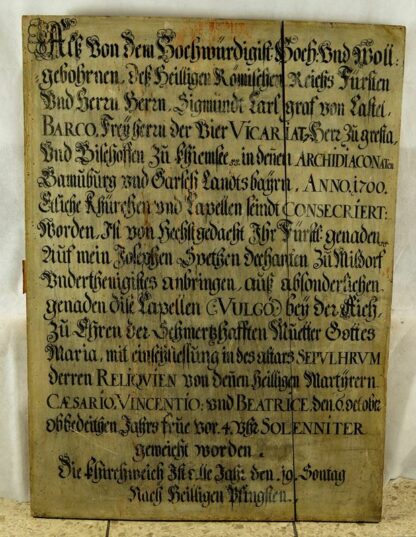 Alß Von dem Hochwürdigist Hoch: Vnd Woll:
gebohrnen, deß Heilligen Römischen Reichs Fürsten
Vnd Herrn Herrn, Sigmundt Carl graf von Castel
BARCO, Freyherrn der Vier VICARIAT, Herr Zu gresta,
Vnd Bischoffen Zu Khiemsee, in denen ARCHIDIACONaten
Baumburg vnd Garsch Landts bayrn, ANNO, 1700.
Etliche Khürchen vnd Capellen seindt CONSECRIERT:
Worden, Ist von Hechst gedacht Ihr Fürstl: genaden
Auf mein Josephen dechanten Zu Mildorf
Vnderthenigistes anbringen, auß absonderlichen
genaden dise Capellen (VULGO) bey der Aich,
Zu Ehren der Schmertzhafften Muetter Gottes
Maria, mit einschliessung in des altars SEPVLHRVM
derren RELIQVIEN von denen Heilligen Martyrern
CÆSARIO, VINCENTIO, vnd BEATRICE, den, 6, october
obbedeitten Jahrs frue vor, 4, Vhr SOLENNITER
geweicht worden.
Die Khirchweich Ist alle Jahr den, 19, Sontag
Nach Heilligen Pfingsten.